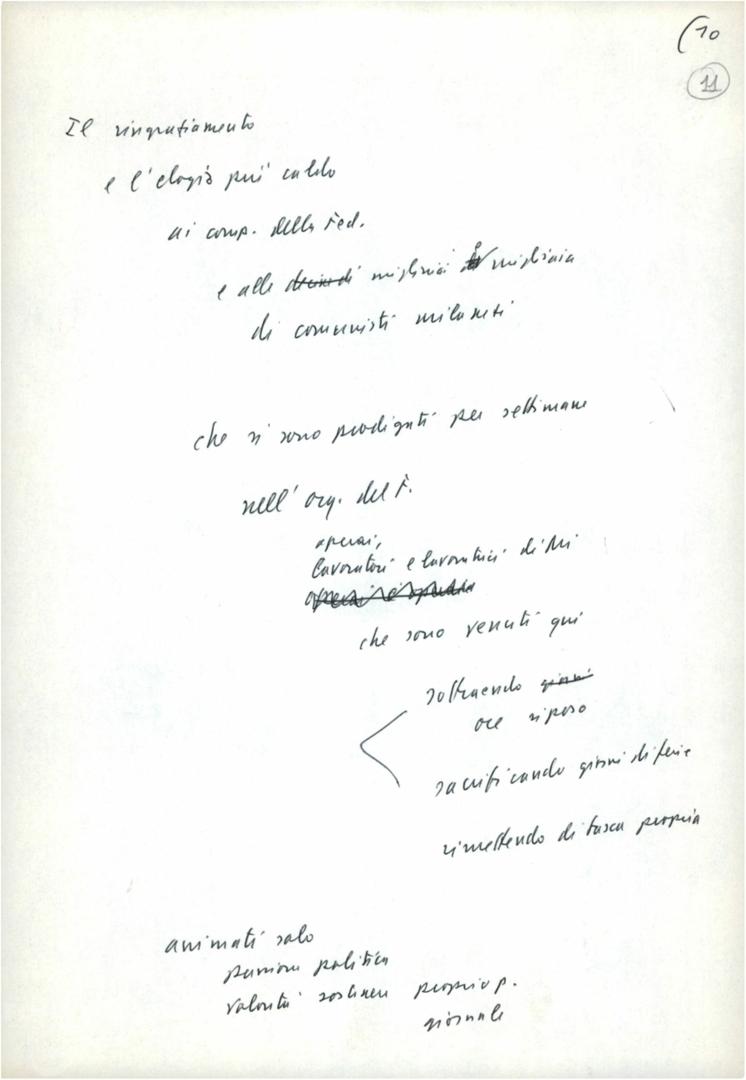 (10
11
Il ringratiamento
e l'elogio più caldo
ai comp. della Fed.
e alle migliaia migliaia
di comunisti milanesi
che si sono prodigati per settimane
nell' org. del F.
operai,
lavoratori e lavoratrici di Mi
operai e operaie
che sono venuti qui
sottraendo giorni
ore riposo
sacrificando giorni di ferie
rimettendo di tasca propria
animati solo
passione politica
volontà sostenere proprio p.
giornale